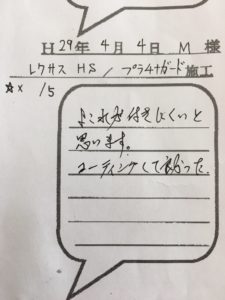 H29年 4月 4日 M 様
レクサス HS / プラチナガード施工
☆× /5
よごれが付きにくいと
思います。
コーティングして良かった。